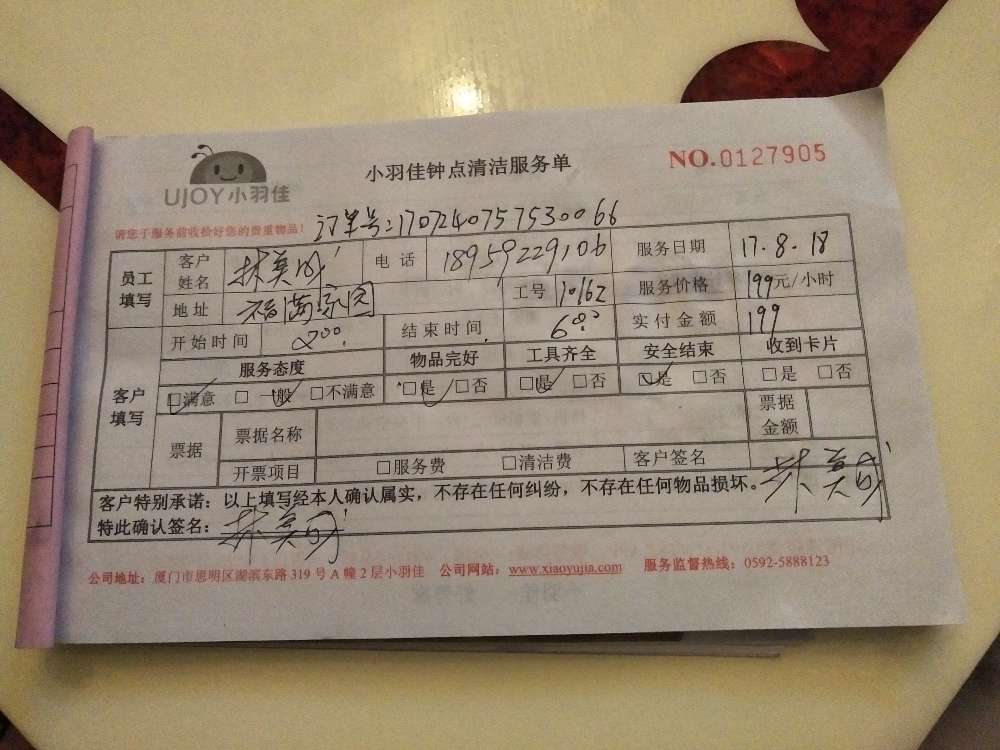 UJOY小羽佳
小羽佳钟点清洁服务单
NO.0127905
请您于服务前收拾好您的贵重物品!
订单号:1707240757530066
员工填写 客户姓名 林美 电话 18959229106 服务日期 17.8.18
地址 福满家园 工号 10162 服务价格 199元/小时
开始时间 200 结束时间 600 实付金额 199
客户填写 服务态度 物品完好 工具齐全 安全结束 收到卡片
□满意 □一般 □不满意 □是 □否 □是 □否 □是 □否 □是 □否
票据 票据名称 票据金额
开票项目 □服务费 □清洁费 客户签名 林美
客户特别承诺:以上填写经本人确认属实,不存在任何纠纷,不存在任何物品损坏。
特此确认签名: 林美
公司地址:厦门市思明区湖滨东路319号A幢2层小羽佳 公司网站:www.xiaoyujia.com 服务监督热线:0592-5888123